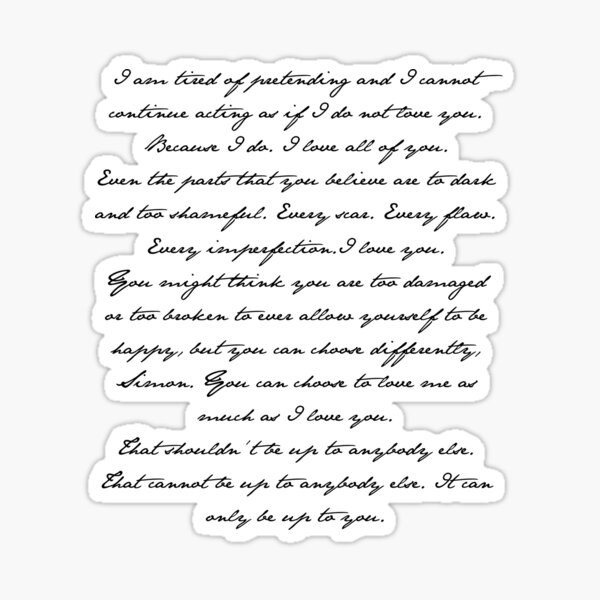 I am tired of pretending and I cannot
continue acting as if I do not love you.
Because I do. I love all of you.
Even the parts that you believe are to dark
and too shameful. Every scar. Every flaw.
Every imperfection.I love you.
You might think you are too damaged
or too broken to ever allow yourself to be
happy, but you can choose differently,
Simon. You can choose to love me as
much as I love you.
That shouldn't be up to anybody else.
That cannot be up to anybody else. It can
only be up to you.